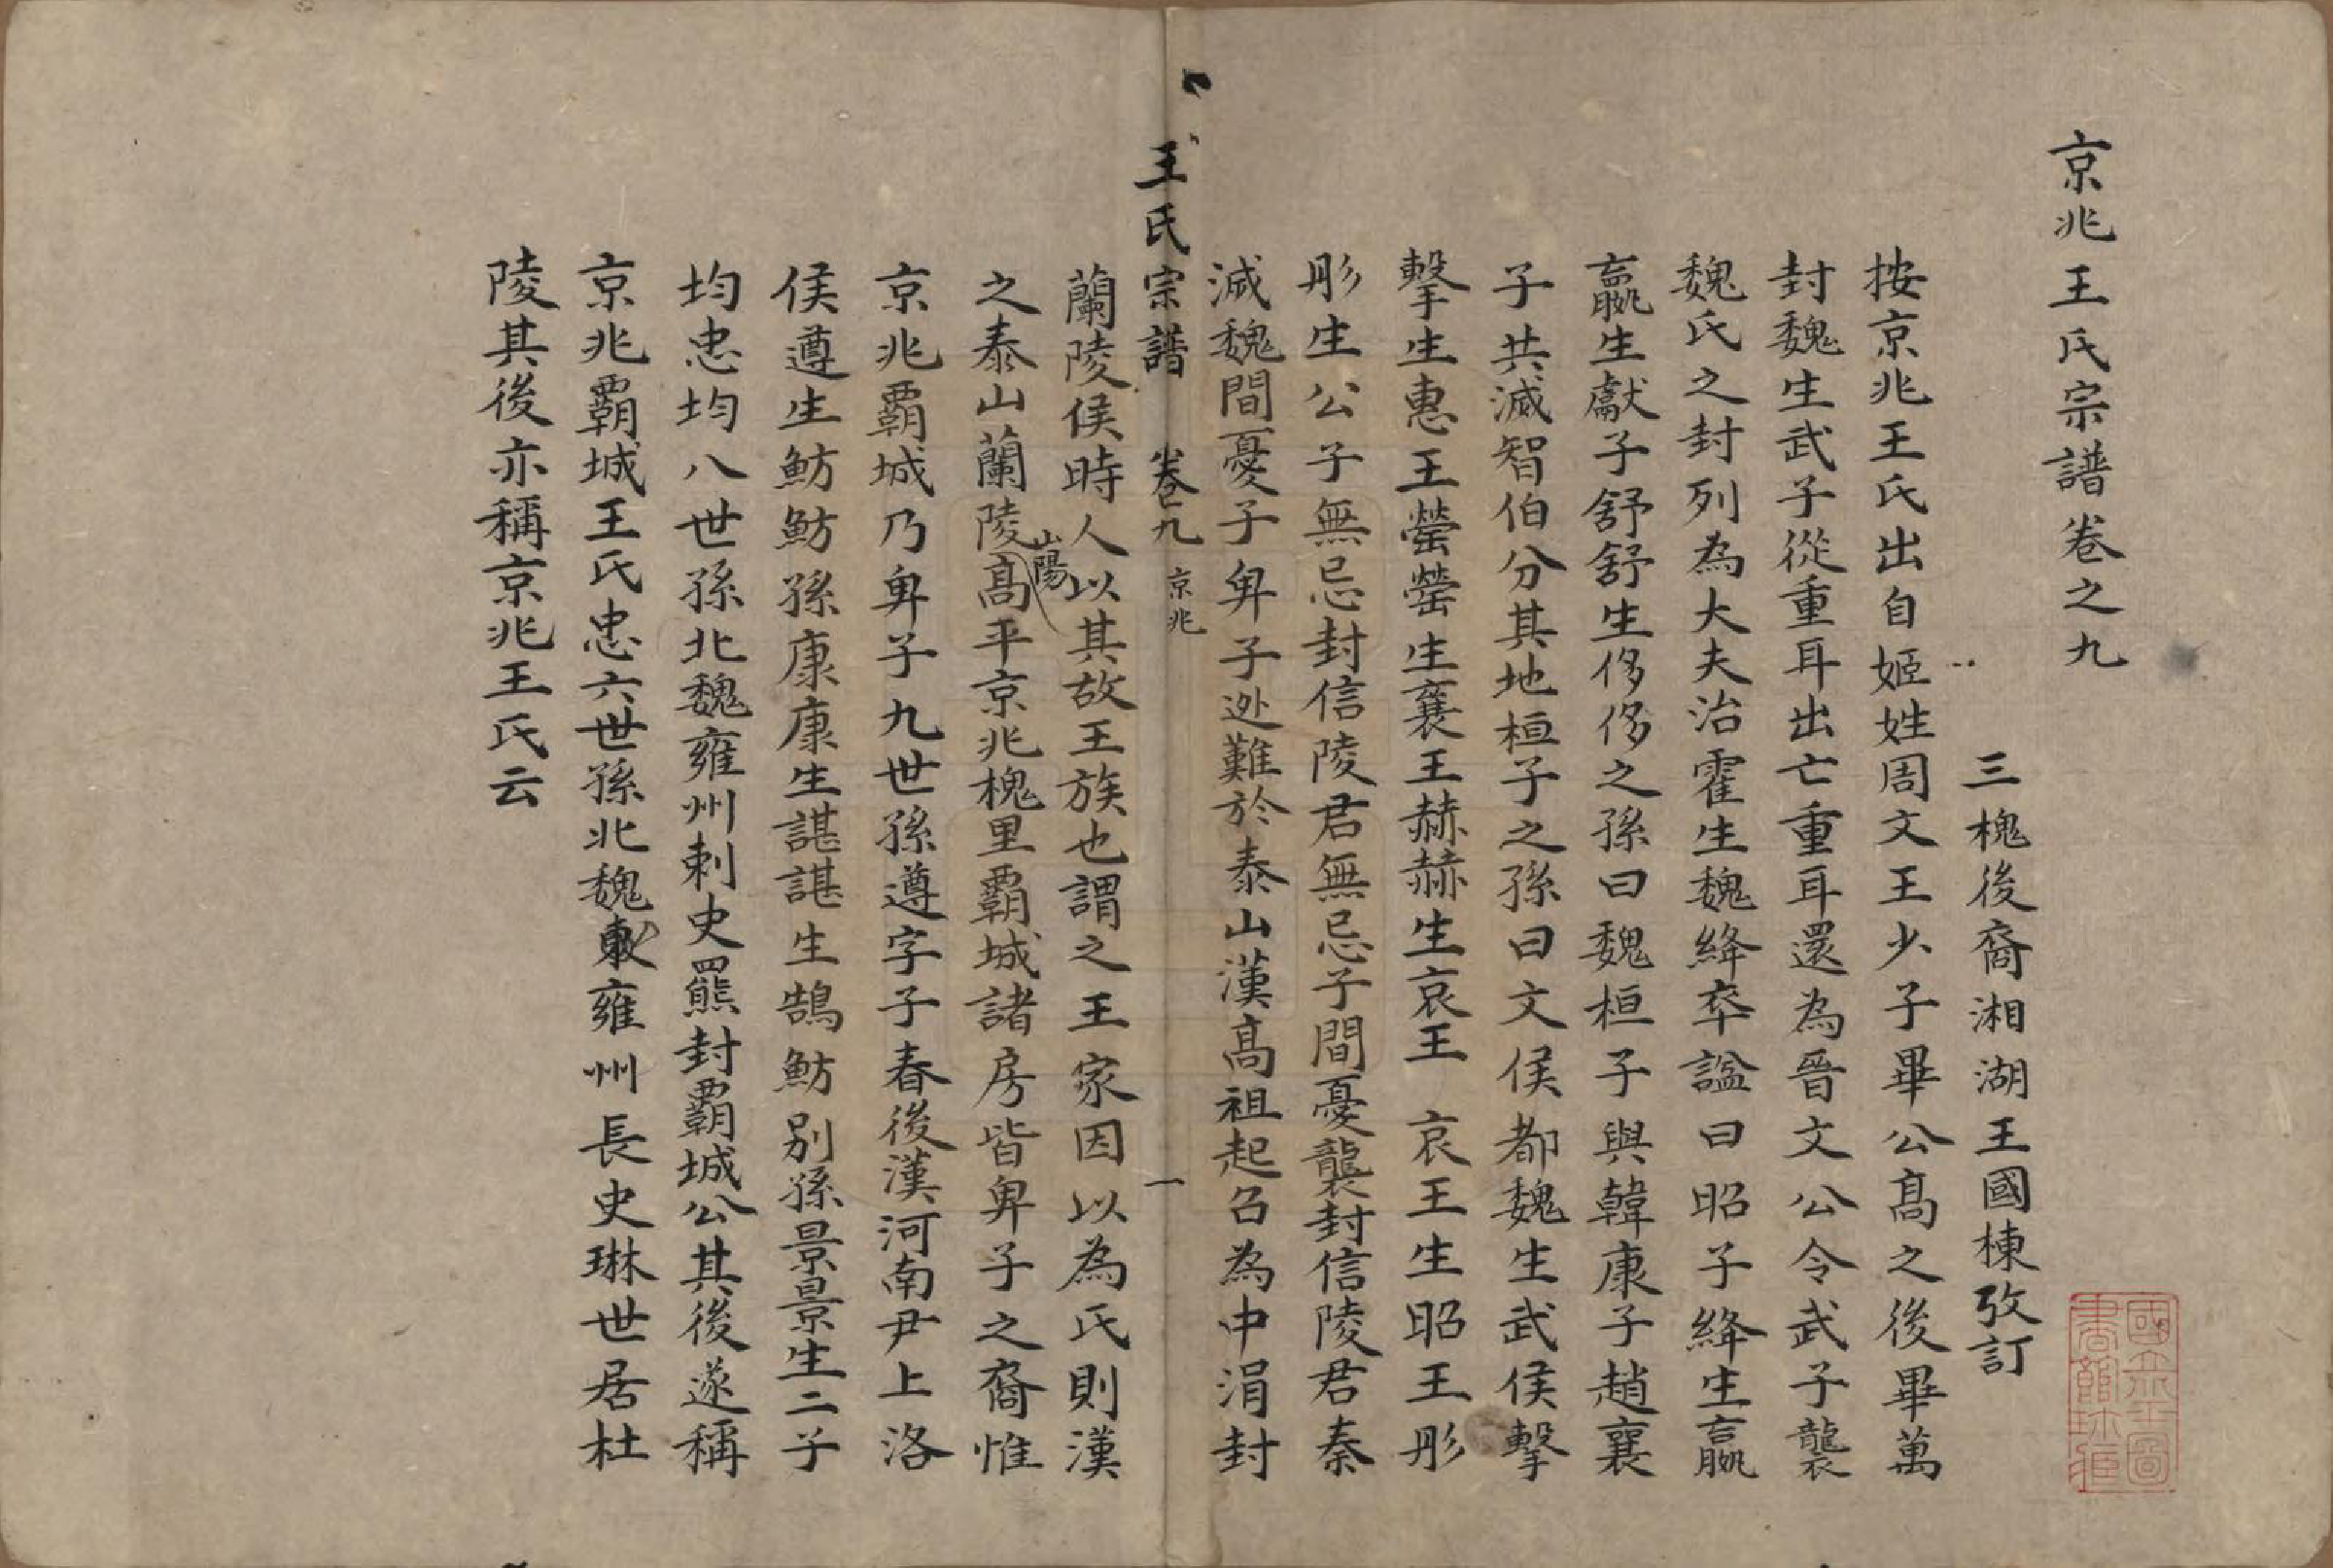 京兆王氏宗譜卷之九
三槐後裔湘湖王國棟攷訂
按京兆王氏出自姬姓周文王少子畢公髙之後畢萬
封魏生武子從重耳出亡重耳還為晉文公令武子襲
魏氏之封列為大夫治霍生魏絳卒諡曰昭子絳生嬴
嬴生獻子舒舒生侈侈之孫曰魏桓子與韓康子趙襄
子共滅智伯分其地桓子之孫曰文侯都魏生武侯擊
擊生惠王罃罃生襄王赫赫生哀王 哀王生昭王彤
彤生公子無忌封信陵君無忌子間憂襲封信陵君秦
滅魏間憂子卑子逊難於泰山漢髙祖起召為中涓封
王氏宗譜 卷九 京兆 一
蘭陵侯時人以其故王族也謂之王家因以為氏則漢
之泰山蘭陵山陽髙平京兆槐里霸城諸房皆卑子之裔惟
京兆霸城乃卑子九世孫遵字子春後漢河南尹上洛
侯遵生魴魴孫康康生諶諶生鵠魴別孫景景生二子
均忠均八世孫北魏雍州刺史羆封霸城公其後遂稱
京兆霸城王氏忠六世孫北魏雍州長史琳世居杜
陵其後亦稱京兆王氏云
國立北平圖書館珍藏